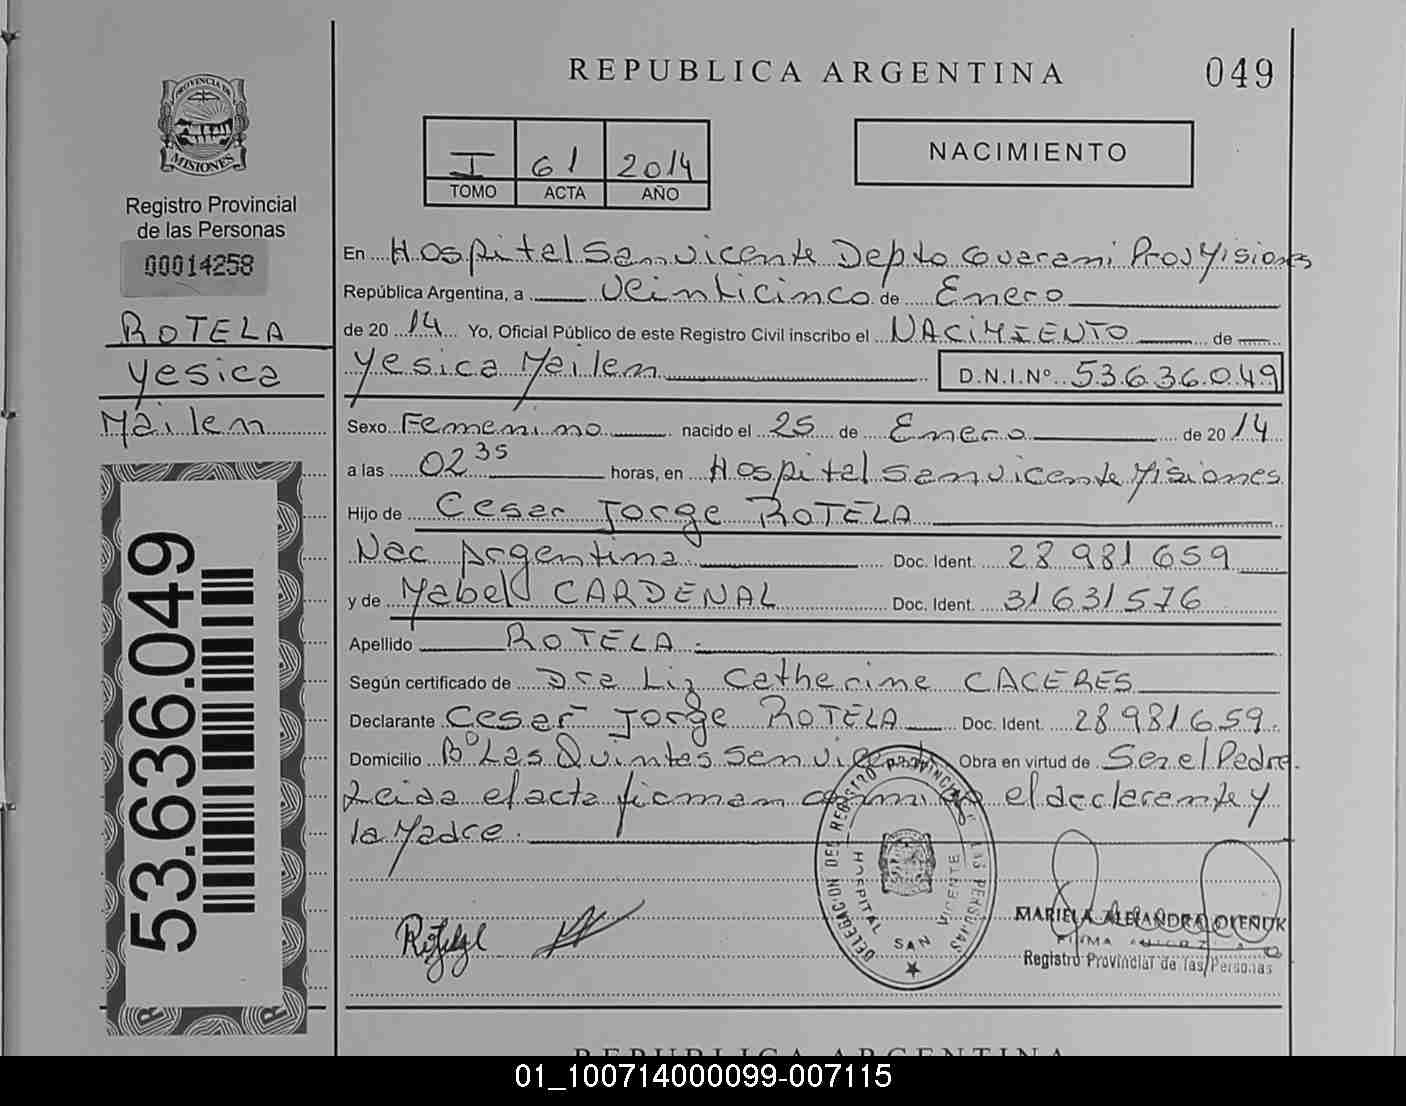 REPUBLICA ARGENTINA
049
PROVINCIA DE
MISIONES
Registro Provincial
de las Personas
00014258
ROTELA
Yesica
Mailen
53.636.049
I 61 2014
TOMO ACTA AÑO
NACIMIENTO
En Hospital San Vicente Depto Guarani Prov Misiones
República Argentina, a veinticinco de Enero
de 2014 Yo, Oficial Público de este Registro Civil inscribo el NACIMIENTO de
Yesica Mailen D.N.I.Nº 53.636.049
Sexo Femenino nacido el 25 de Enero de 2014
a las 02 35 horas, en Hospital San Vicente Misiones
Hijo de Cesar Jorge ROTELA
Nac Argentina Doc. Ident. 28 981 659
y de Mabel CARDENAL Doc. Ident. 31 631 576
Apellido ROTELA
Según certificado de Dra Liz Catherine CACERES
Declarante Cesar Jorge ROTELA Doc. Ident. 28 981 659
Domicilio Bº Las Quintas San Vicente Obra en virtud de Ser el Padre
Leida el acta firman conmigo el declarante y
la Madre.
DELEGACION DEL REGISTRO PROVINCIAL DE LAS PERSONAS
HOSPITAL SAN VICENTE
MARIELA ALEJANDRA
Registro Provincial de las Personas
REPUBLICA ARGENTINA
01_100714000099-007115